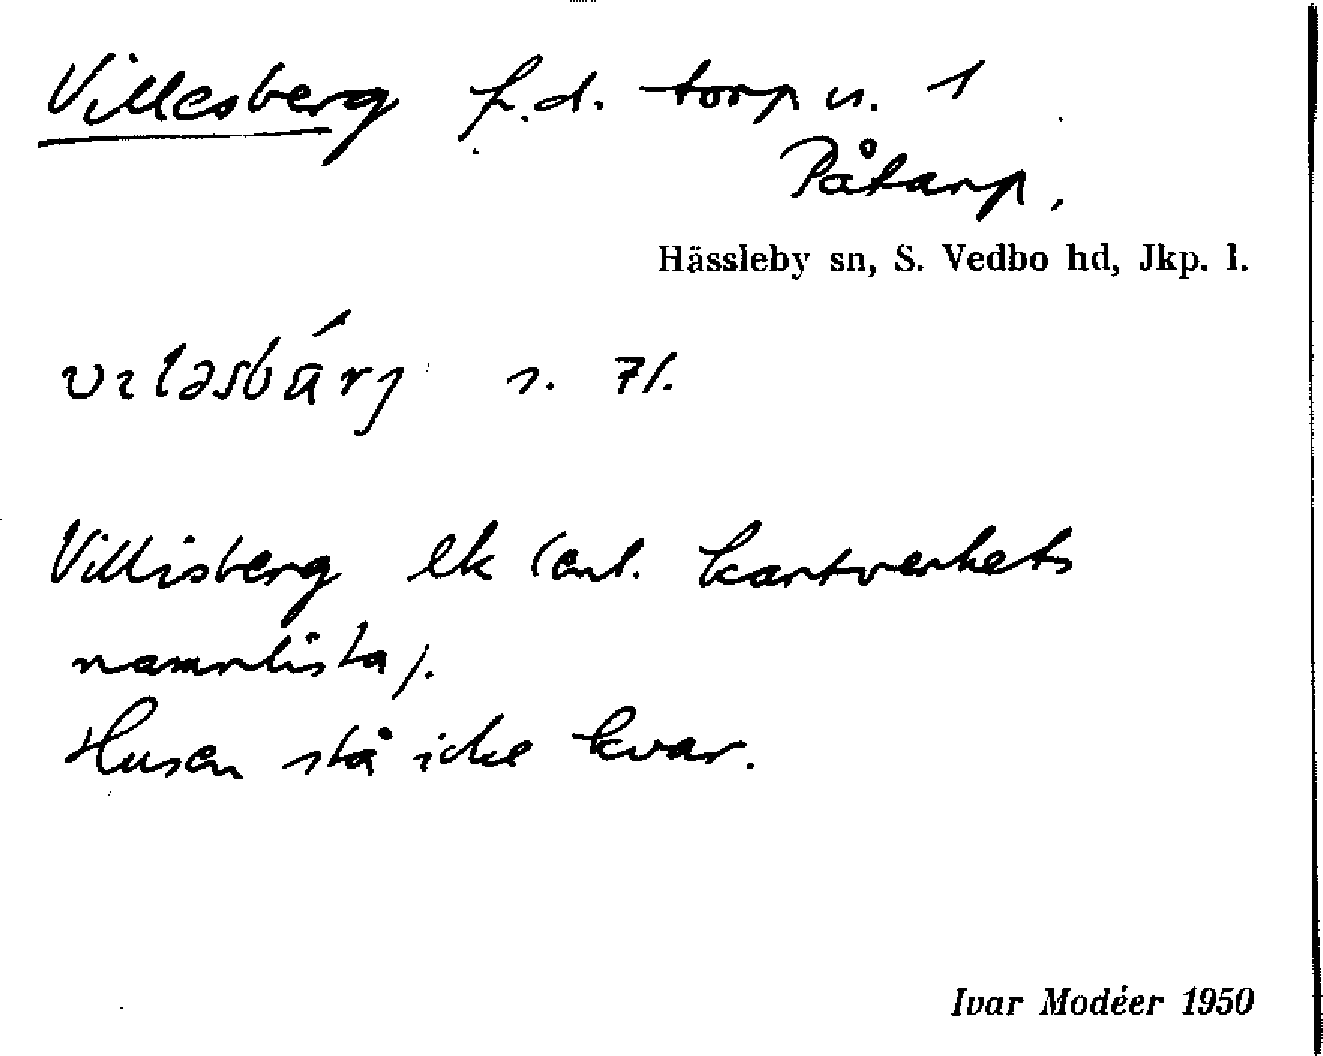 Villesberg f.d. torp u. 1
Påtarp.
Hässleby sn, S. Vedbo hd, Jkp. l.
vɪləsbárj s. 71.
Villisberg ek (enl. kartverkets
namnlista).
Husen stå icke kvar.
Ivar Modéer 1950